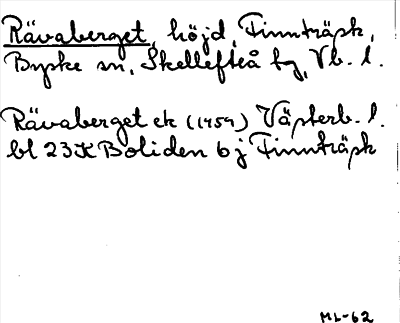 Rävaberget, höjd, Finnträsk,
Byske sn, Skellefteå fg, Vb. l.
Rävaberget ek (1959) Västerb. l.
bl 23K Boliden 6j Finnträsk
ML-62